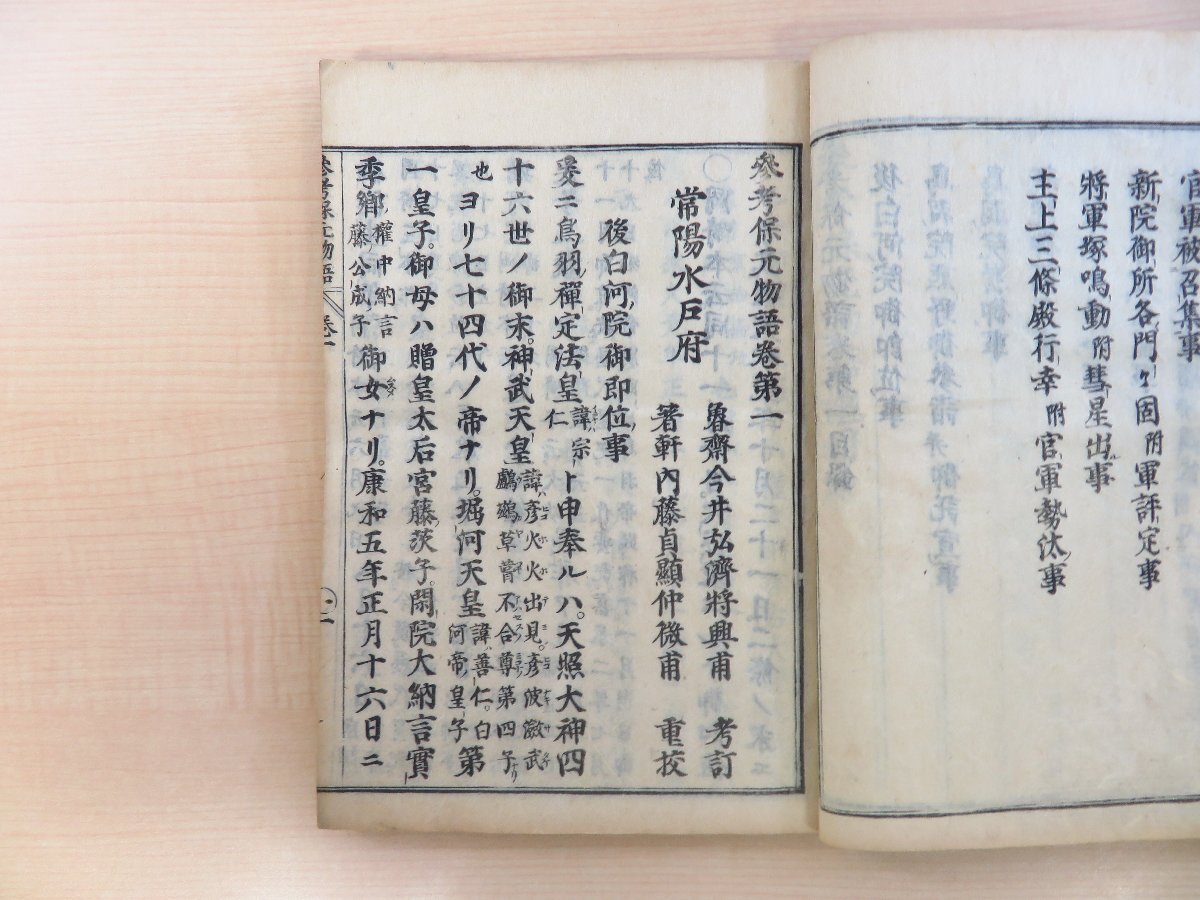 官軍被召集事
新院御所各門々固附軍評定事
將軍塚鳴動附彗星出事
主上三條殿行幸附官軍勢汰事
參考保元物語卷第一
常陽水戸府
魯齋今井弘濟將興甫 考訂
箬軒内藤貞顯仲微甫 重校
後白河院御即位事
爰ニ鳥羽禪定法皇諱宗仁ト申奉ルハ。天照大神四
十六世ノ御末。神武天皇諱彦火火出見。彦波瀲武鸕鷀草葺不合尊第四子
也ヨリ七十四代ノ帝ナリ。堀河天皇諱善仁。白河帝皇子第
一皇子。御母ハ贈皇太后宮藤茨子。閑院大納言實
季卿權中納言藤公成子御女ナリ。康和五年正月十六日ニ
參考保元物語 卷一